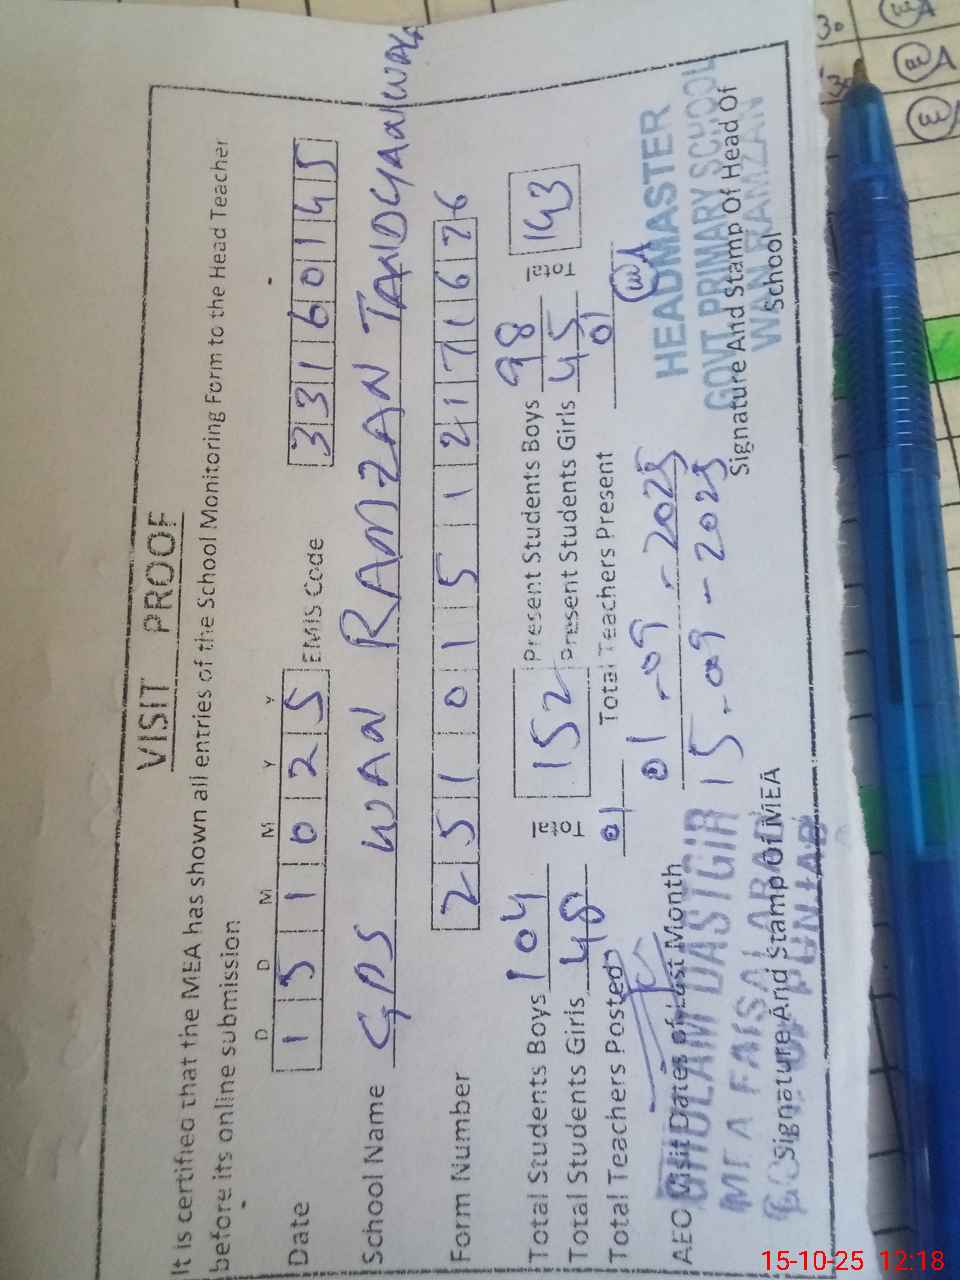 VISIT PROOF
It is certified that the MEA has shown all entries of the School Monitoring Form to the Head Teacher
before its online submission
D D M M Y Y
Date 1 5 1 0 2 5 EMIS Code 3 3 1 6 0 1 4 5
School Name GPS WAN RAMZAN
Form Number 2 5 1 0 1 5 1 2 1 7 1 6 2 6
Total Students Boys 104 Total 152 Present Students Boys 98 Total 143
Total Students Girls 48 Present Students Girls 45
Total Teachers Posted 01 Total Teachers Present 01
AEO Visit Dates of Last Month 01-09-2025
15-09-2025
GHULAM DASTGIR
MEA FAISALABAD
PUNJAB
Signature And Stamp Of MEA
HEADMASTER
GOVT PRIMARY SCHOOL
WAN RAMZAN
Signature And Stamp Of Head Of
School
15-10-25 12:18